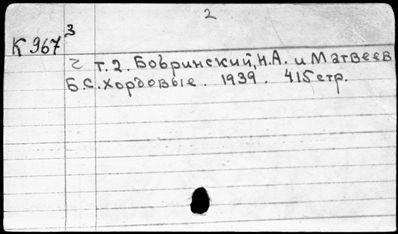 2
К 967³
т. 2. Бобринский, Н.А. и Матвеев
Б.С. Хордовые. 1939. 415 стр.